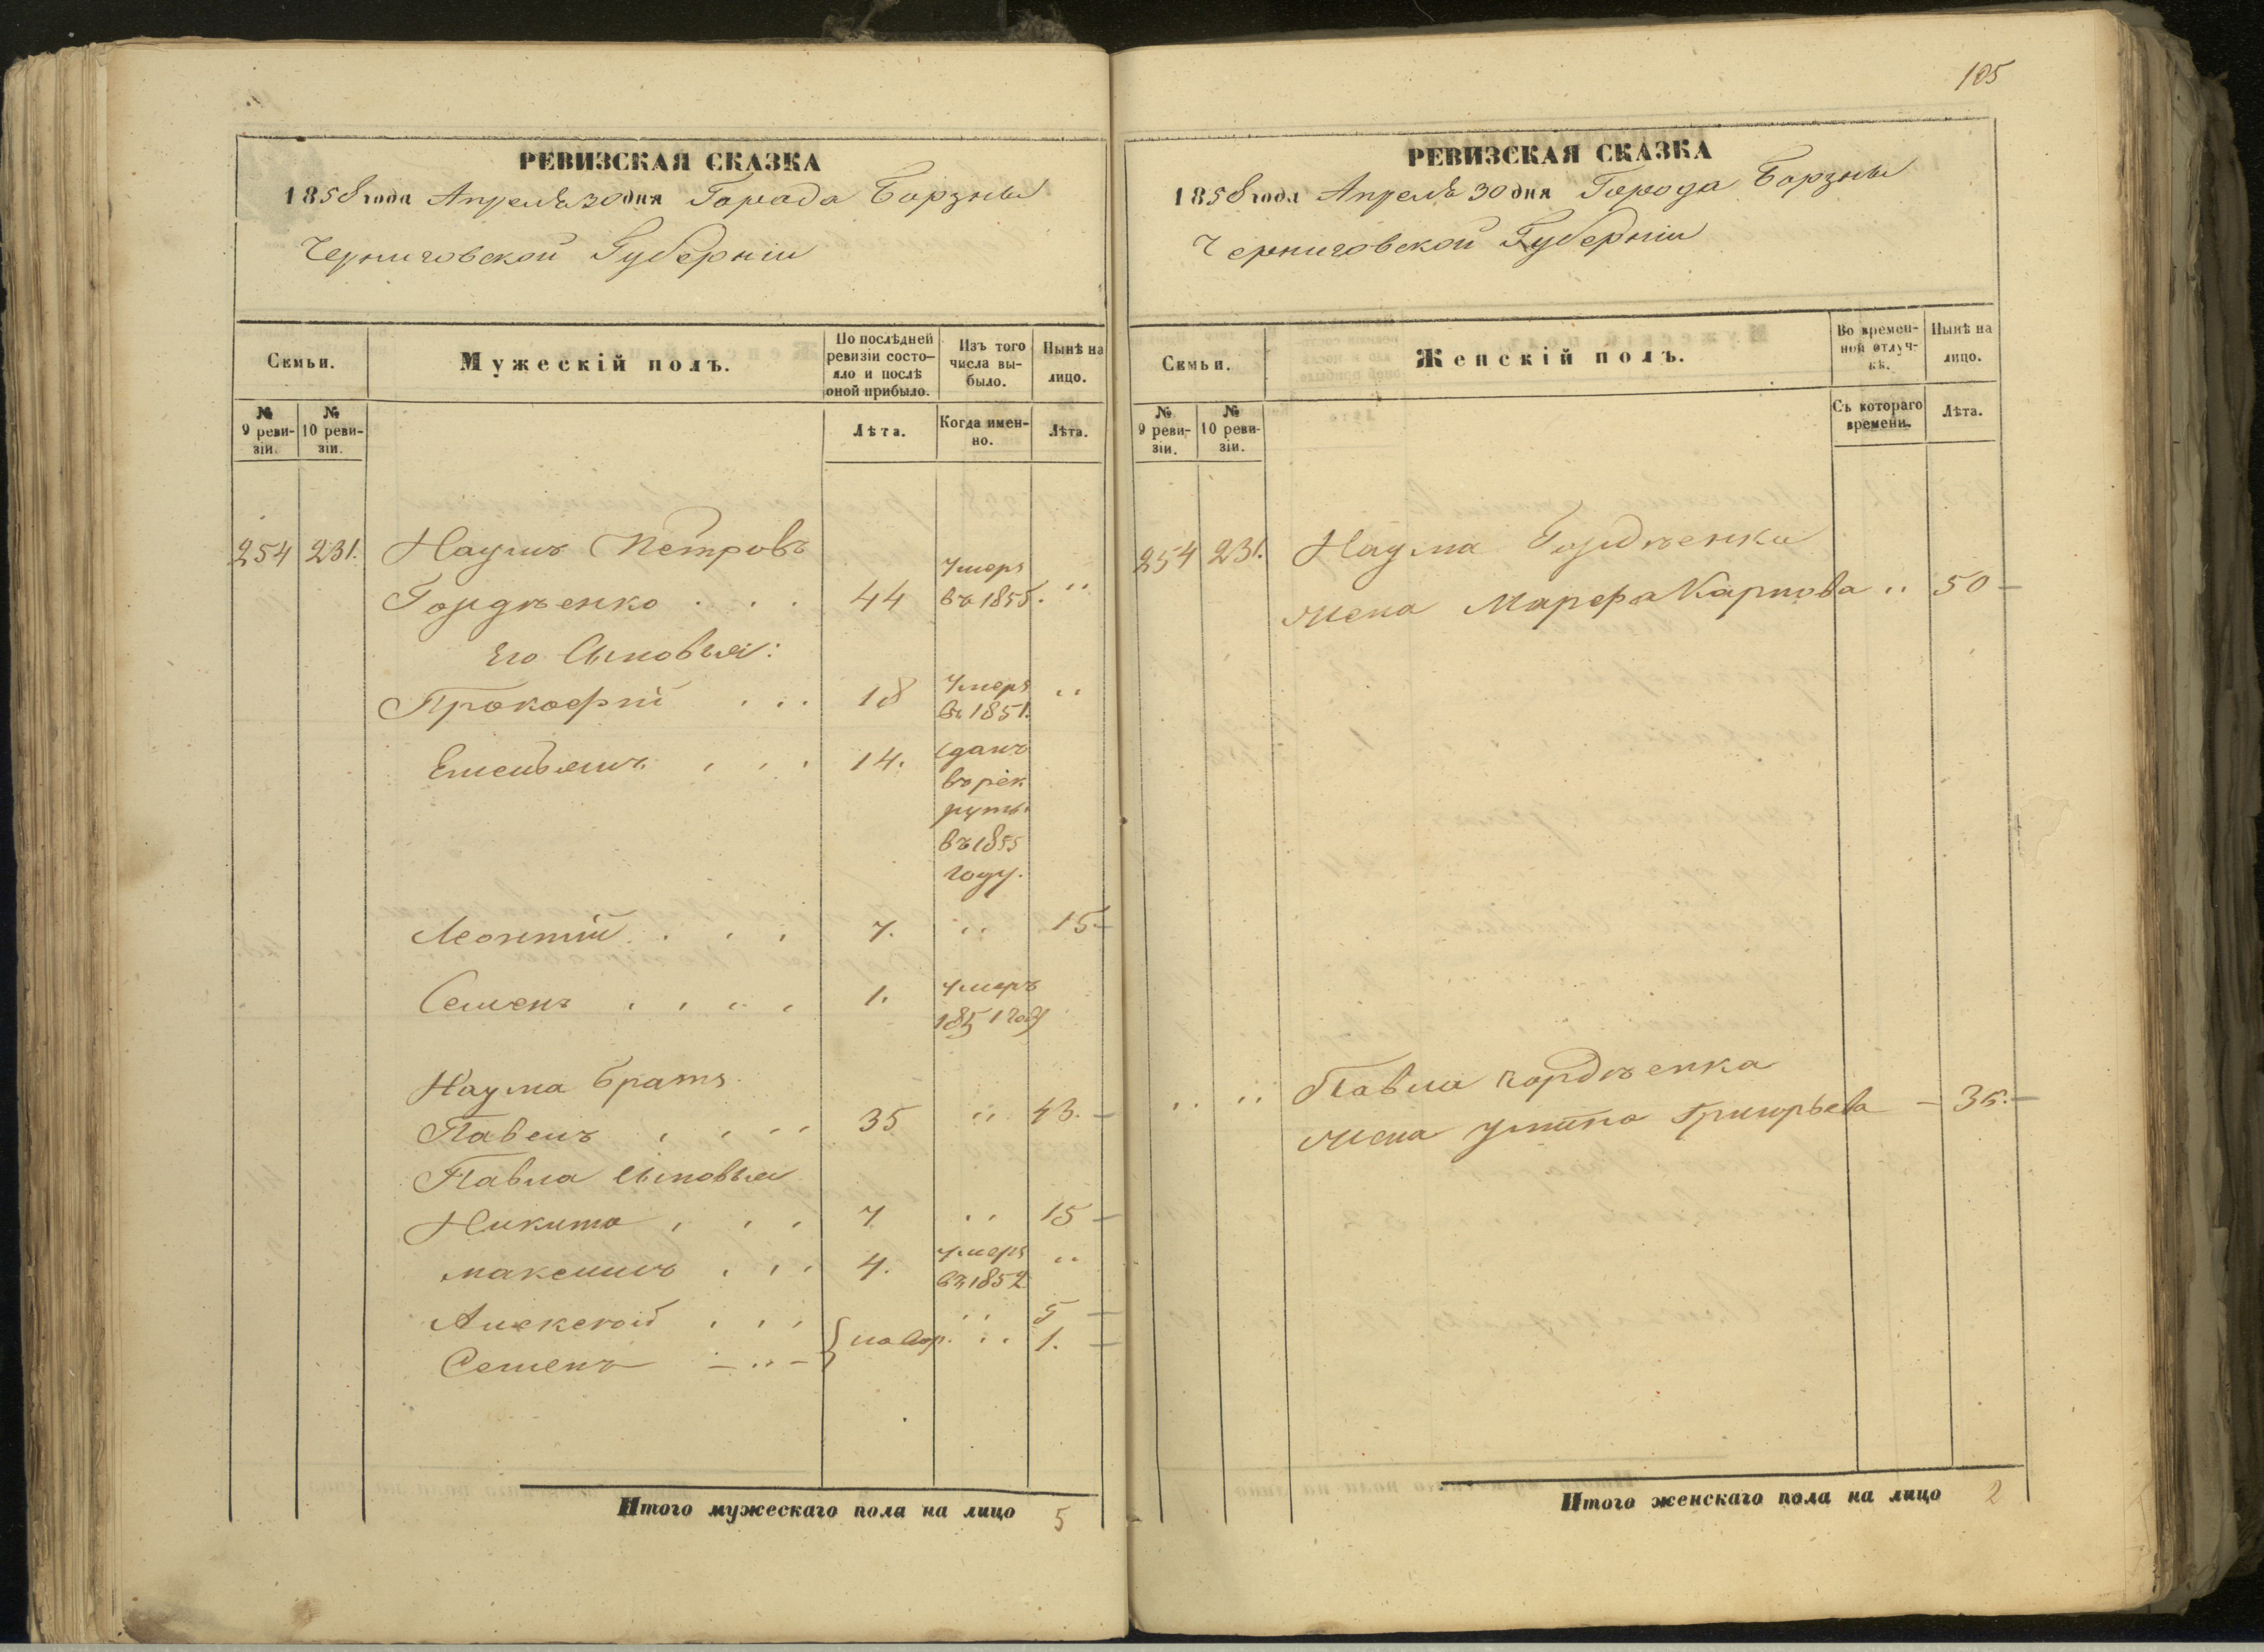 РЕВИЗСКАЯ СКАЗКА
1858 года Апреля 30 дня Города Борзны
Черниговской Губерніи
Семьи.
Мужескій полъ.
По послѣдней ревизіи состо-
яло и послѣ
оной прибыло.
Изъ того
числа вы-
было.
Нынѣ на
лицо.
№
9 реви-
зіи.
№
10 реви-
зіи.
Лѣта.
Когда имен-
но.
Лѣта.
254 231. Наумъ Петровъ
Гордѣенко . . . 44 Умеръ
въ 1855. "
Его Сыновья:
Прокофій . . . 18 Умеръ
въ 1851. "
Емельянъ . . . 14. Сданъ
въ рек
руты
въ 1855
году.
Леонтій . . . 7. " 15 –
Семенъ . . . . 1. умеръ
1851 году
Наума братъ
Павелъ . . . . 35 " 43. –
Павла сыновья
Никита . . . 7 " 15 –
Максимъ . . . 4. умеръ
въ 1852 "
Алексѣй . . . " 5 –
Семенъ – " – } новор. " 1. –
Итого мужескаго пола на лицо 5
105
РЕВИЗСКАЯ СКАЗКА
1858 года Апреля 30 дня Города Борзны
Черниговской Губерніи
Семьи.
Женскій полъ.
Во времен-
ной отлуч-
кѣ.
Нынѣ на
лицо.
№
9 реви-
зіи.
№
10 реви-
зіи.
Съ котораго
времени.
Лѣта.
254 231. Наума Гордѣенка
жена Марфа Карпова " 50 –
" " Павла гордѣенка
жена Устина Григорьева – 35. –
Итого женскаго пола на лицо 2